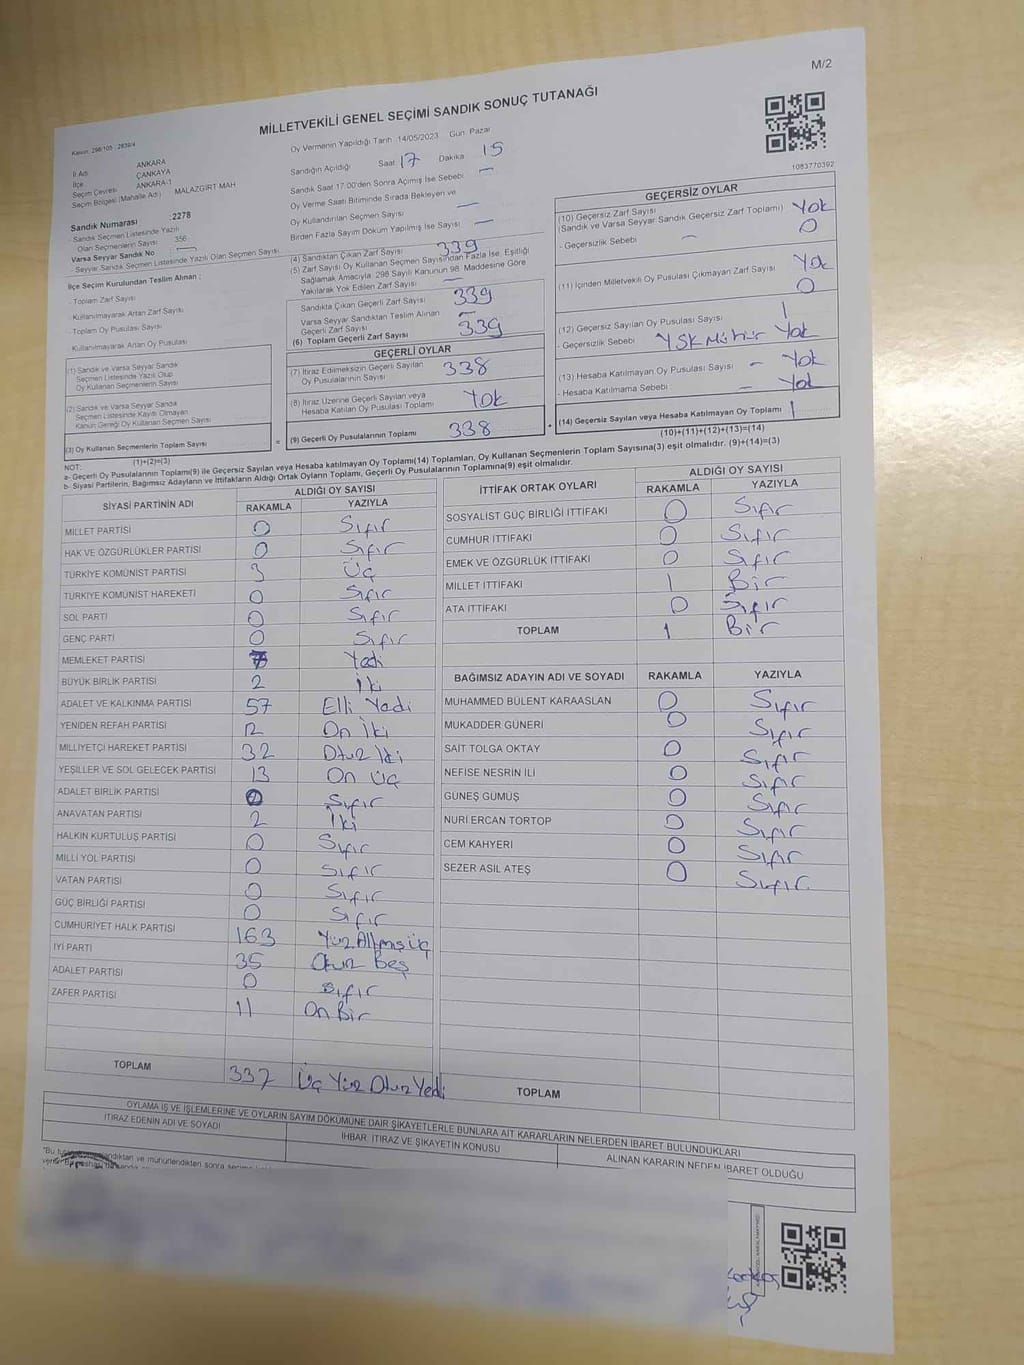 M/2
MİLLETVEKİLİ GENEL SEÇİMİ SANDIK SONUÇ TUTANAĞI
Kanun: 298/105 ; 2839/4
1083770392
İl Adı ANKARA
İlçe ÇANKAYA
Seçim Çevresi ANKARA-1
Seçim Bölgesi (Mahalle Adı) MALAZGİRT MAH
Sandık Numarası : 2278
- Sandık Seçmen Listesinde Yazılı
Olan Seçmenlerin Sayısı 356
Varsa Seyyar Sandık No —
- Seyyar Sandık Listesinde Yazılı Olan Seçmen Sayısı
İlçe Seçim Kurulundan Teslim Alınan :
- Toplam Zarf Sayısı
- Kullanılmayarak Artan Zarf Sayısı
- Toplam Oy Pusulası Sayısı
Kullanılmayarak Artan Oy Pusulası
(1) Sandık ve Varsa Seyyar Sandık
Seçmen Listesinde Yazılı Olup
Oy Kullanan Seçmenlerin Sayısı
(2) Sandık ve Varsa Seyyar Sandık
Seçmen Listesinde Kaydı Olmayan
Kanun Gereği Oy Kullanan Seçmen Sayısı
(3) Oy Kullanan Seçmenlerin Toplam Sayısı
(1)+(2)=(3)
Oy Vermenin Yapıldığı Tarih 14/05/2023 Gün Pazar
Sandığın Açıldığı Saat 17 Dakika 15
Sandık Saat 17:00'den Sonra Açımış İse Sebebi —
Oy Verme Saati Bitiminde Sırada Bekleyen ve
Oy Kullandırılan Seçmen Sayısı —
Birden Fazla Sayım Döküm Yapılmış İse Sayısı —
(4) Sandıktan Çıkan Zarf Sayısı 339
(5) Zarf Sayısı Oy Kullanan Seçmen Sayısından Fazla İse, Eşitliği
Sağlamak Amacıyla, 298 Sayılı Kanunun 98. Maddesine Göre
Yakılarak Yok Edilen Zarf Sayısı —
Sandıkta Çıkan Geçerli Zarf Sayısı 339
Varsa Seyyar Sandıktan Teslim Alınan
Geçerli Zarf Sayısı —
(6) Toplam Geçerli Zarf Sayısı 339
GEÇERLİ OYLAR
(7) İtiraz Edilmeksizin Geçerli Sayılan
Oy Pusulalarının Sayısı 338
(8) İtiraz Üzerine Geçerli Sayılan veya
Hesaba Katılan Oy Pusulası Toplamı Yok
= (9) Geçerli Oy Pusulalarının Toplamı 338 +
GEÇERSİZ OYLAR
(10) Geçersiz Zarf Sayısı Yok
(Sandık ve Varsa Seyyar Sandık Geçersiz Zarf Toplamı) 0
- Geçersizlik Sebebi —
(11) İçinden Milletvekili Oy Pusulası Çıkmayan Zarf Sayısı Yok
0
(12) Geçersiz Sayılan Oy Pusulası Sayısı 1
- Geçersizlik Sebebi YSK Mühür Yok
(13) Hesaba Katılmayan Oy Pusulası Sayısı — Yok
- Hesaba Katılmama Sebebi — Yok
(14) Geçersiz Sayılan veya Hesaba Katılmayan Oy Toplamı 1
(10)+(11)+(12)+(13)=(14)
NOT:
a- Geçerli Oy Pusulalarının Toplamı(9) ile Geçersiz Sayılan veya Hesaba katılmayan Oy Toplamı(14) Toplamları, Oy Kullanan Seçmenlerin Toplam Sayısına(3) eşit olmalıdır. (9)+(14)=(3)
b- Siyasi Partilerin, Bağımsız Adayların ve İttifakların Aldığı Ortak Oyların Toplamı, Geçerli Oy Pusulalarının Toplamına(9) eşit olmalıdır.
SİYASİ PARTİNİN ADI ALDIĞI OY SAYISI
RAKAMLA YAZIYLA
MİLLET PARTİSİ 0 Sıfır
HAK VE ÖZGÜRLÜKLER PARTİSİ 0 Sıfır
TÜRKİYE KOMÜNİST PARTİSİ 3 Üç
TÜRKİYE KOMÜNİST HAREKETİ 0 Sıfır
SOL PARTİ 0 Sıfır
GENÇ PARTİ 0 Sıfır
MEMLEKET PARTİSİ 7 Yedi
BÜYÜK BİRLİK PARTİSİ 2 İki
ADALET VE KALKINMA PARTİSİ 57 Elli Yedi
YENİDEN REFAH PARTİSİ 12 On İki
MİLLİYETÇİ HAREKET PARTİSİ 32 Otuz İki
YEŞİLLER VE SOL GELECEK PARTİSİ 13 On Üç
ADALET BİRLİK PARTİSİ 0 Sıfır
ANAVATAN PARTİSİ 2 İki
HALKIN KURTULUŞ PARTİSİ 0 Sıfır
MİLLİ YOL PARTİSİ 0 Sıfır
VATAN PARTİSİ 0 Sıfır
GÜÇ BİRLİĞİ PARTİSİ 0 Sıfır
CUMHURİYET HALK PARTİSİ 163 Yüz Altmış Üç
İYİ PARTİ 35 Otuz Beş
ADALET PARTİSİ 0 Sıfır
ZAFER PARTİSİ 11 On Bir
TOPLAM 337 Üç Yüz Otuz Yedi
İTTİFAK ORTAK OYLARI ALDIĞI OY SAYISI
RAKAMLA YAZIYLA
SOSYALİST GÜÇ BİRLİĞİ İTTİFAKI 0 Sıfır
CUMHUR İTTİFAKI 0 Sıfır
EMEK VE ÖZGÜRLÜK İTTİFAKI 0 Sıfır
MİLLET İTTİFAKI 1 Bir
ATA İTTİFAKI 0 Sıfır
TOPLAM 1 Bir
BAĞIMSIZ ADAYIN ADI VE SOYADI RAKAMLA YAZIYLA
MUHAMMED BÜLENT KARAASLAN 0 Sıfır
MUKADDER GÜNERİ 0 Sıfır
SAİT TOLGA OKTAY 0 Sıfır
NEFİSE NESRİN İLİ 0 Sıfır
GÜNEŞ GÜMÜŞ 0 Sıfır
NURİ ERCAN TORTOP 0 Sıfır
CEM KAHYERİ 0 Sıfır
SEZER ASIL ATEŞ 0 Sıfır
TOPLAM
OYLAMA İŞ VE İŞLEMLERİNE VE OYLARIN SAYIM DÖKÜMÜNE DAİR ŞİKAYETLERLE BUNLARA AİT KARARLARIN NELERDEN İBARET BULUNDUKLARI
İTİRAZ EDENİN ADI VE SOYADI İHBAR, İTİRAZ VE ŞİKAYETİN KONUSU ALINAN KARARIN NEDEN İBARET OLDUĞU